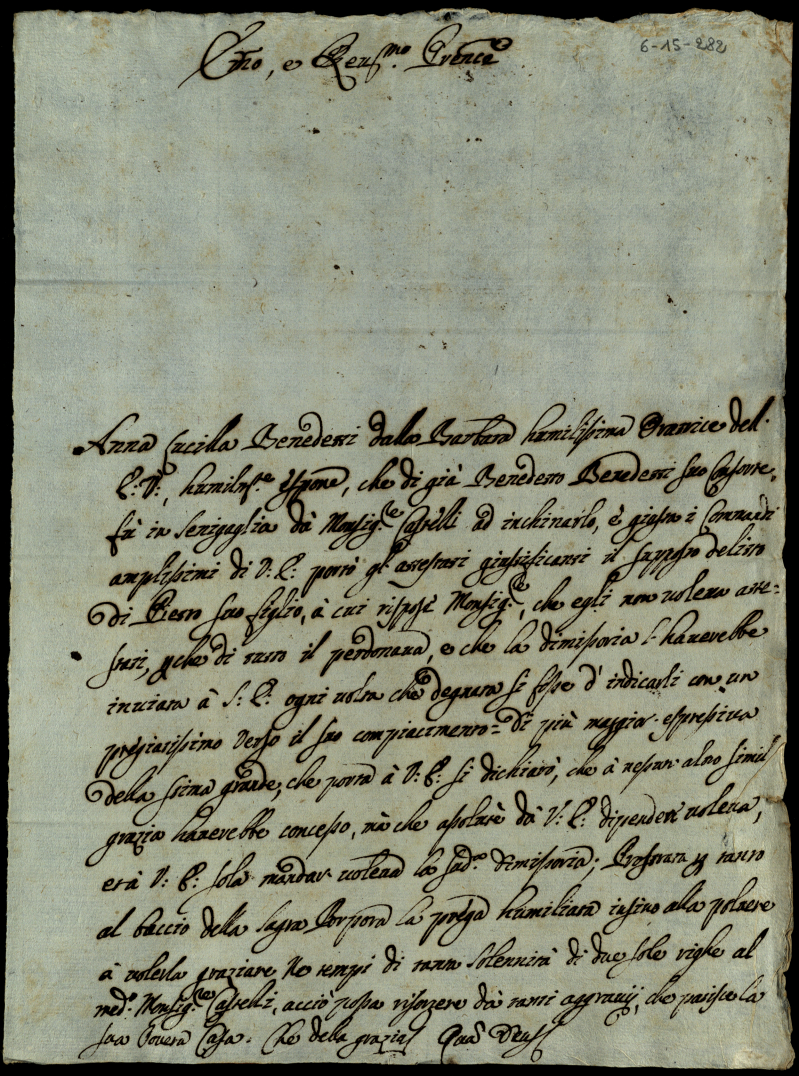 6-15-282
Em̃o, e Reu.mo Prencẽ
Anna Lucilla Benedetti dalla Barbara humilissima Oratrice dell'
E: V:, humilm.te espone, che di già Benedetto Benedetti suo Consorte,
fù in Senigaglia dà Monsig.re Castelli ad inchinarlo, e giusta i Commandi
amplissimi di V: E: portò gl' attestati giustificanti il supposto delitto
di Pietro suo figlio, à cui rispose Monsig.re, che egli non voleua atte=
stati, che di tutto il perdonaua, e che la dimissoria l' hauerebbe
inuiata à S: E: ogni uolta che degnata si fosse d' indicarli con un
pregiatissimo verso il suo compiacimento= Di più maggior espressiua
della stima grande, che porta à V: E: si dichiarò, che à nessun' altro simil'
grazia hauerebbe concesso, mà che assolutè dà V: E: dipender uoleua,
et à V: E: sola mandar uoleua la sud.a dimissoria; Prostrata p tanto
al baccio della Sagra Porpora la prega humiliata insino alla poluere
à uolerla graziare ne tempi di tanta solennità di due sole righe al
med.o Monsig.re Castelli, acciò possa risorgere dà tanti aggrauij, che patisce la
sua pouera Casa. Che della grazia Quã Deus